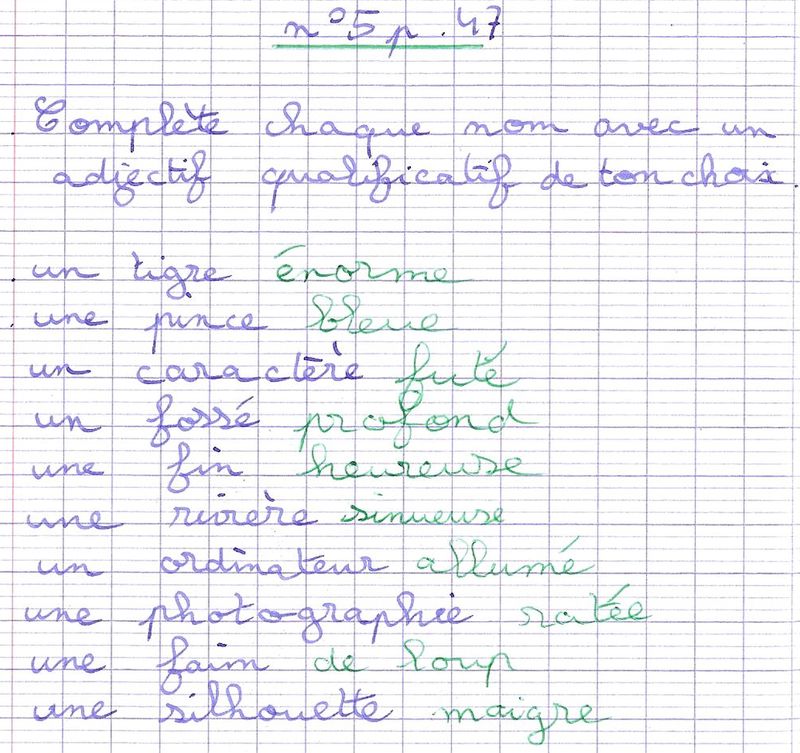 n°5 p.47
Complète chaque nom avec un
adjectif qualificatif de ton choix.
un tigre énorme
une pince bleue
un caractère futé
un fossé profond
une fin heureuse
une rivière sinueuse
un ordinateur allumé
une photographie ratée
une faim de loup
une silhouette maigre